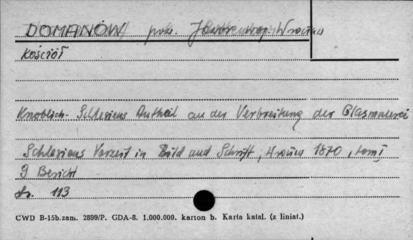 DOMANÓW pow.
Kościół
Knoblich - Schlesiens Antheil an der Verbreitung der Glasmalerei
Schlesiens Vorzeit in Bild und Schrift, 1870, tom I
9 Bericht
str. 113
CWD B-15b.zam. 2899/P. GDA-8. 1.000.000. karton b. Karta katal. (z liniat.)